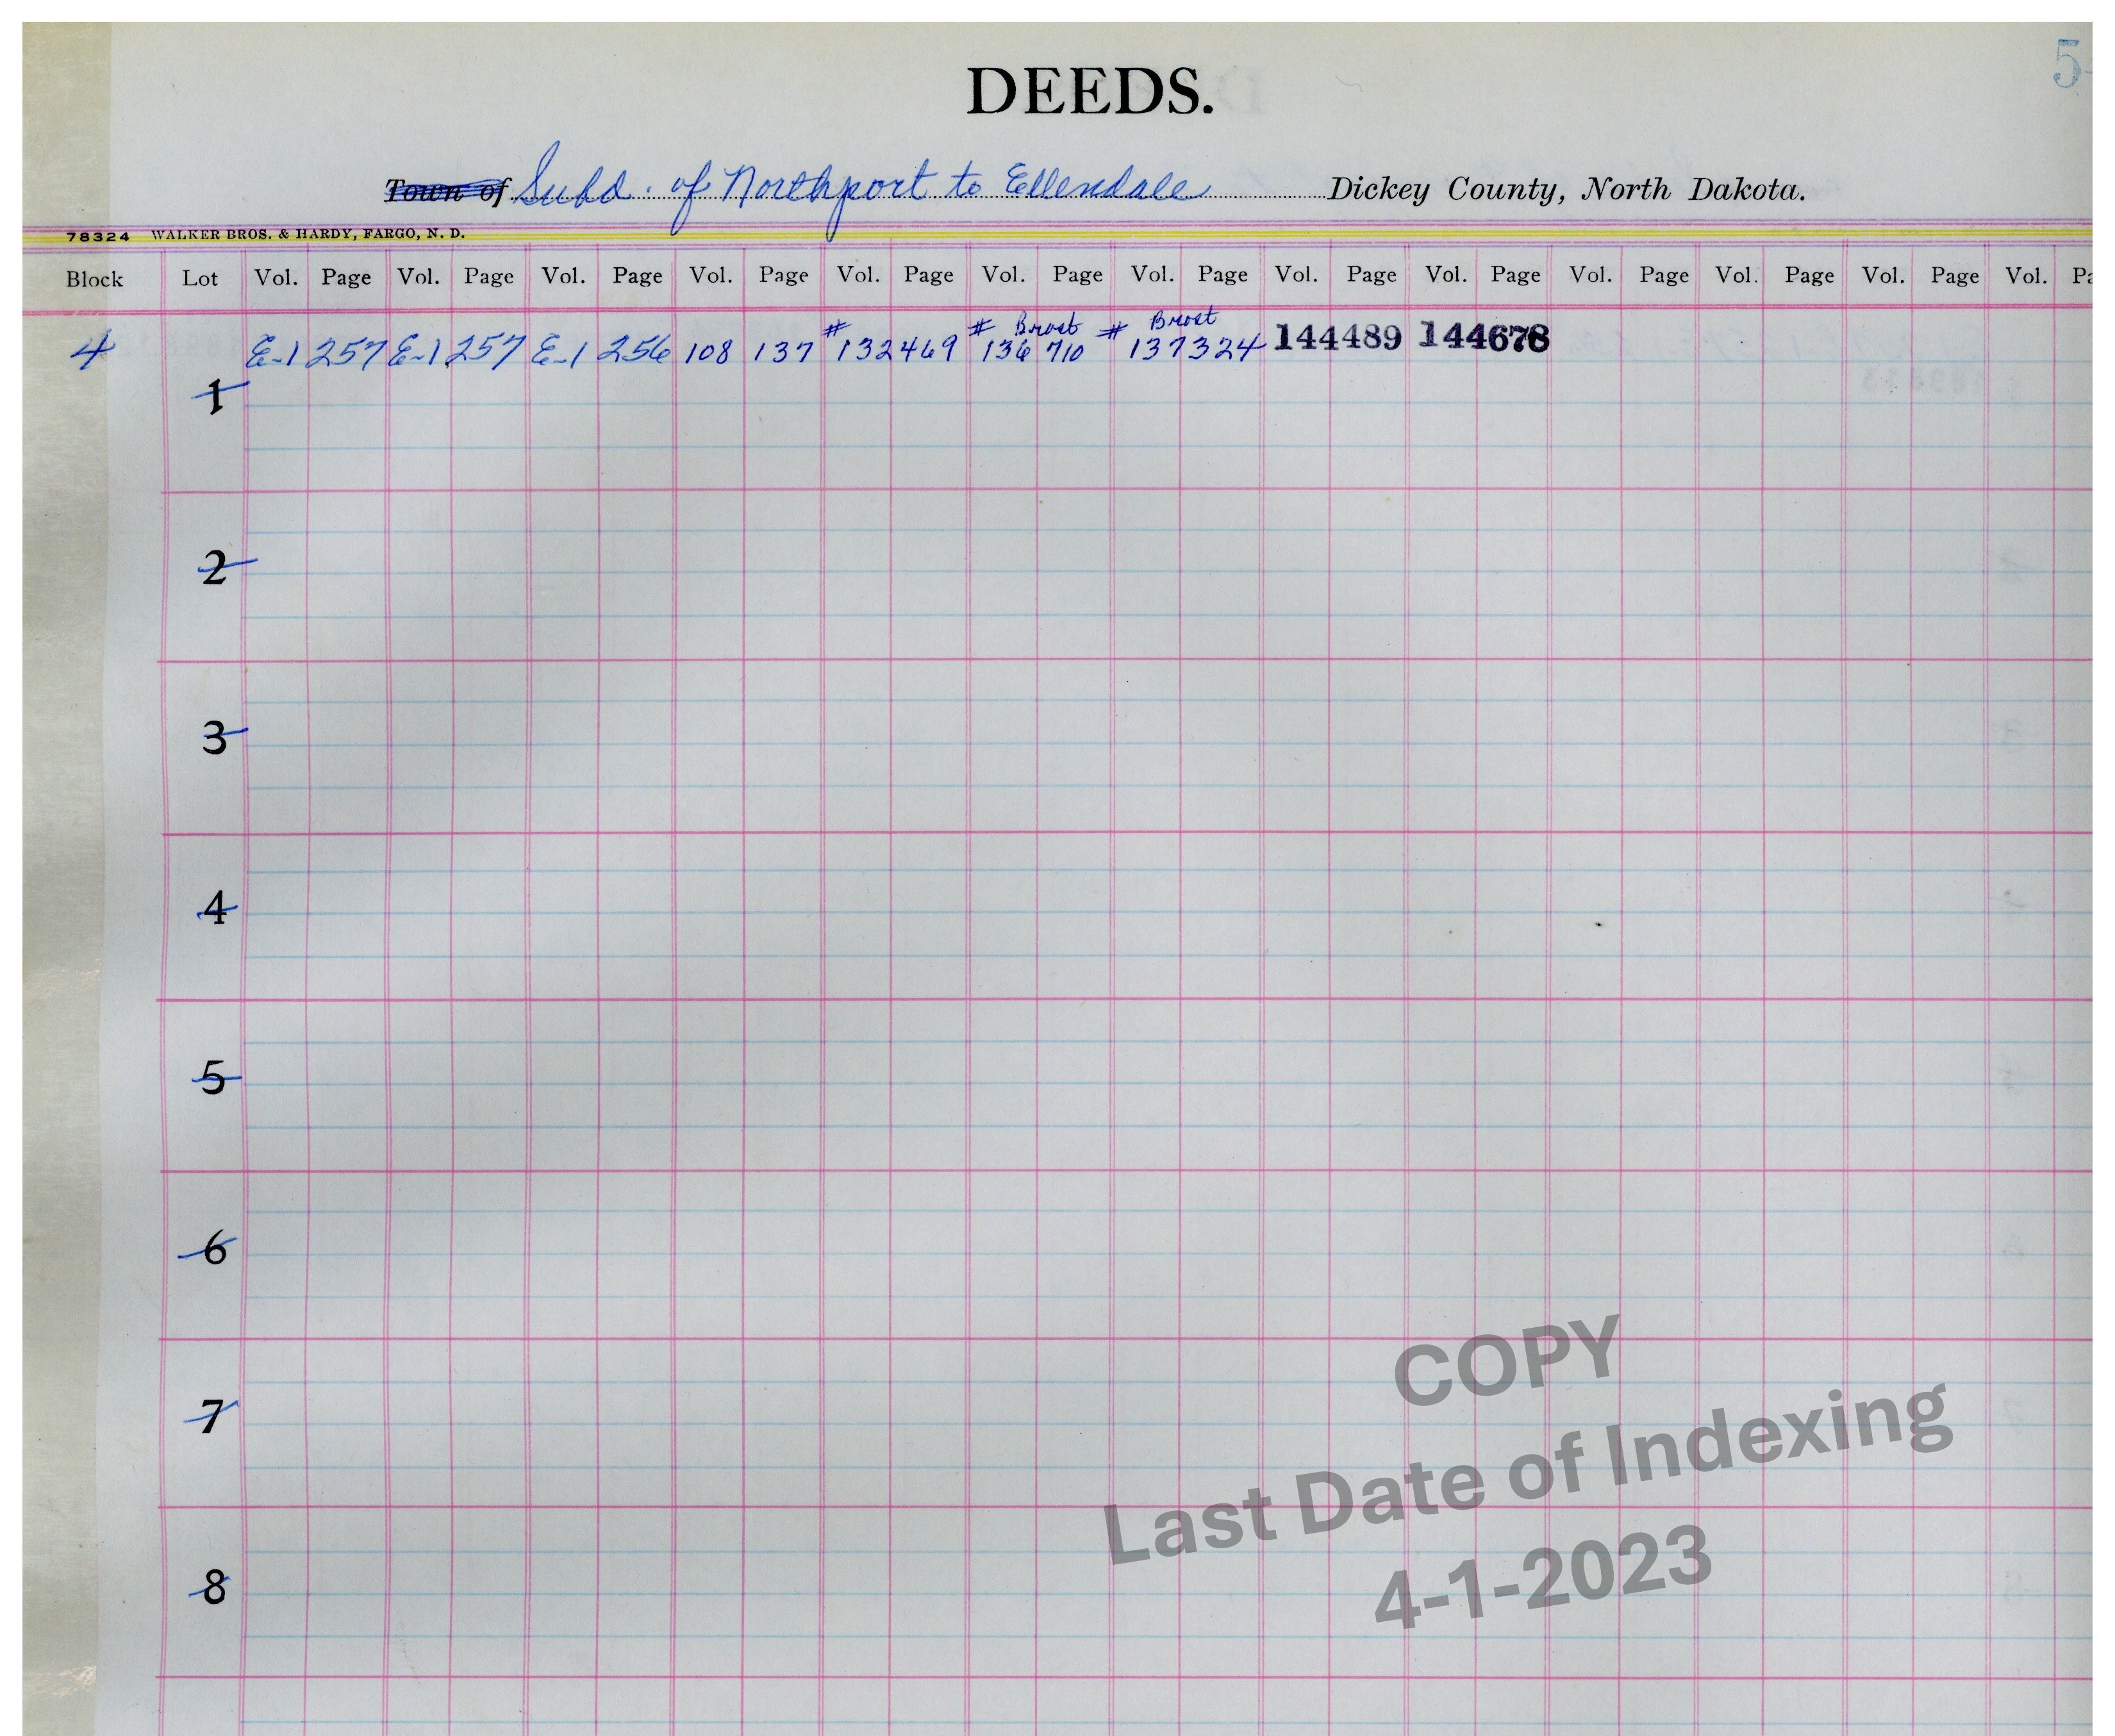 5
DEEDS.
Town of Subd. of Northport to Ellendale Dickey County, North Dakota.
78324 WALKER BROS. & HARDY, FARGO, N. D.
Block Lot Vol. Page Vol. Page Vol. Page Vol. Page Vol. Page Vol. Page Vol. Page Vol. Page Vol. Page Vol. Page Vol. Page Vol. Page Vol. Pa
# # Brost # Brost
4 E-1 257 E-1 257 E-1 256 108 137 132469 136 710 137324 144489 144678
1
2
3
4
5
6
7
8
COPY
Last Date of Indexing
4-1-2023